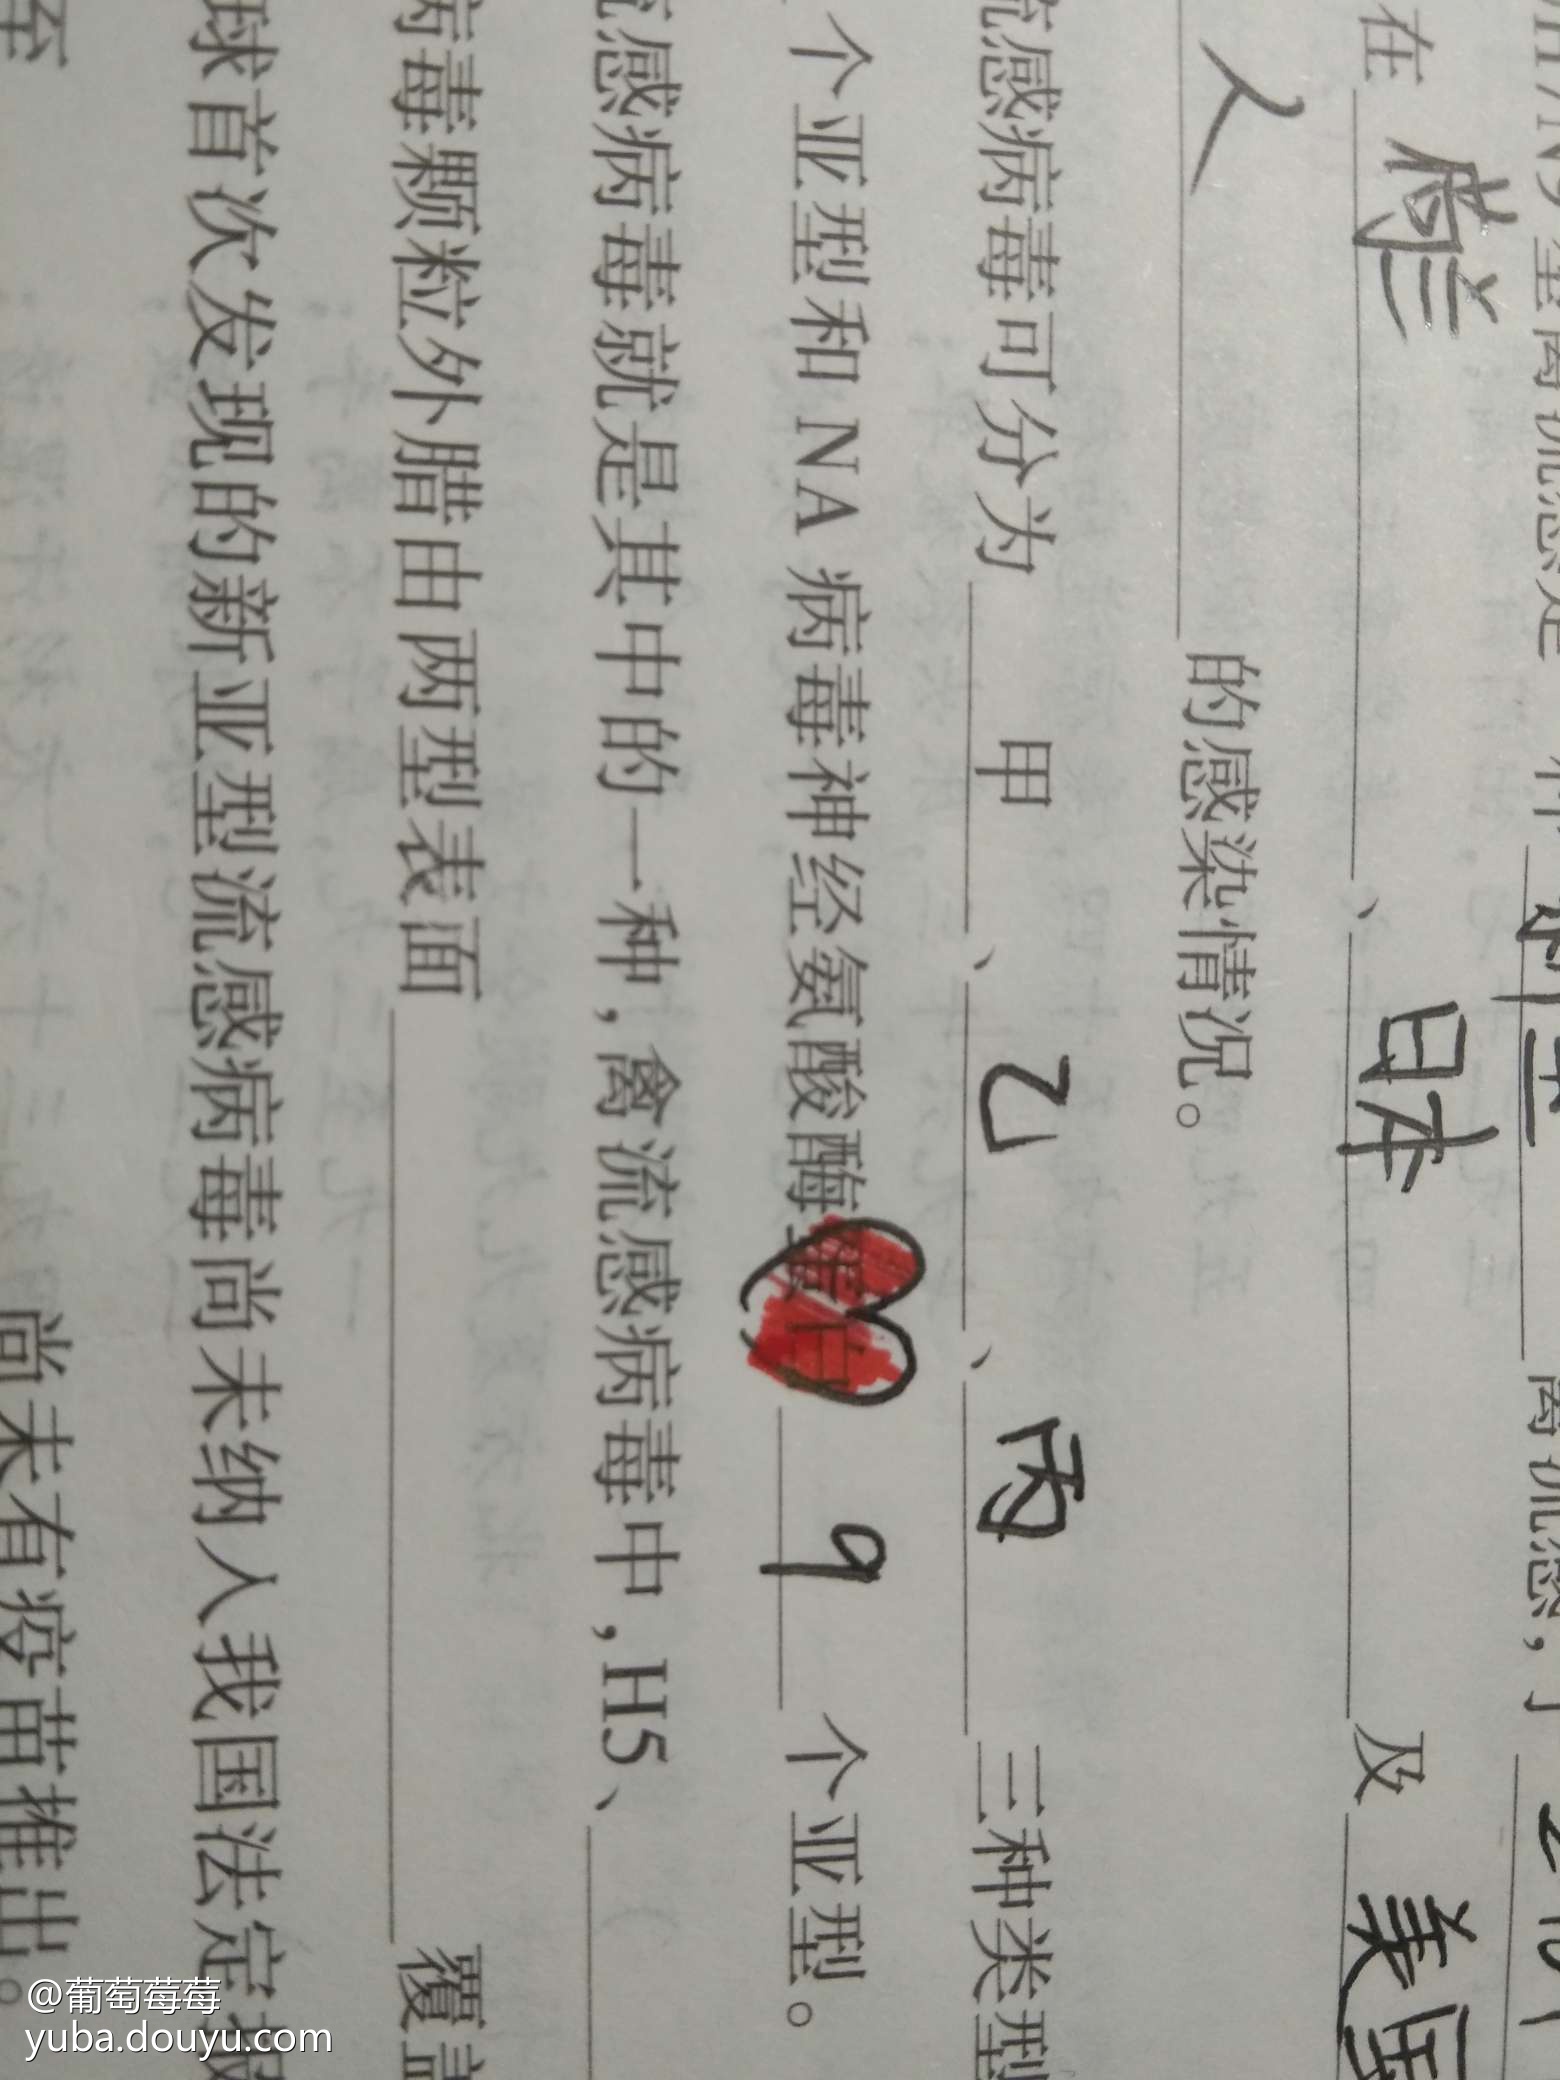 禽流感, 于
在 荷兰 、 日本 及 美国
人 的感染情况。
流感病毒可分为 甲 、 乙 、 丙 三种类型
个亚型和 NA 病毒神经氨酸酶蛋白 9 个亚型。
流感病毒就是其中的一种,禽流感病毒中,H5、
病毒颗粒外腊由两型表面 覆盖
球首次发现的新亚型流感病毒尚未纳人我国法定报
至 尚未有疫苗推出。
@葡萄莓莓
yuba.douyu.com